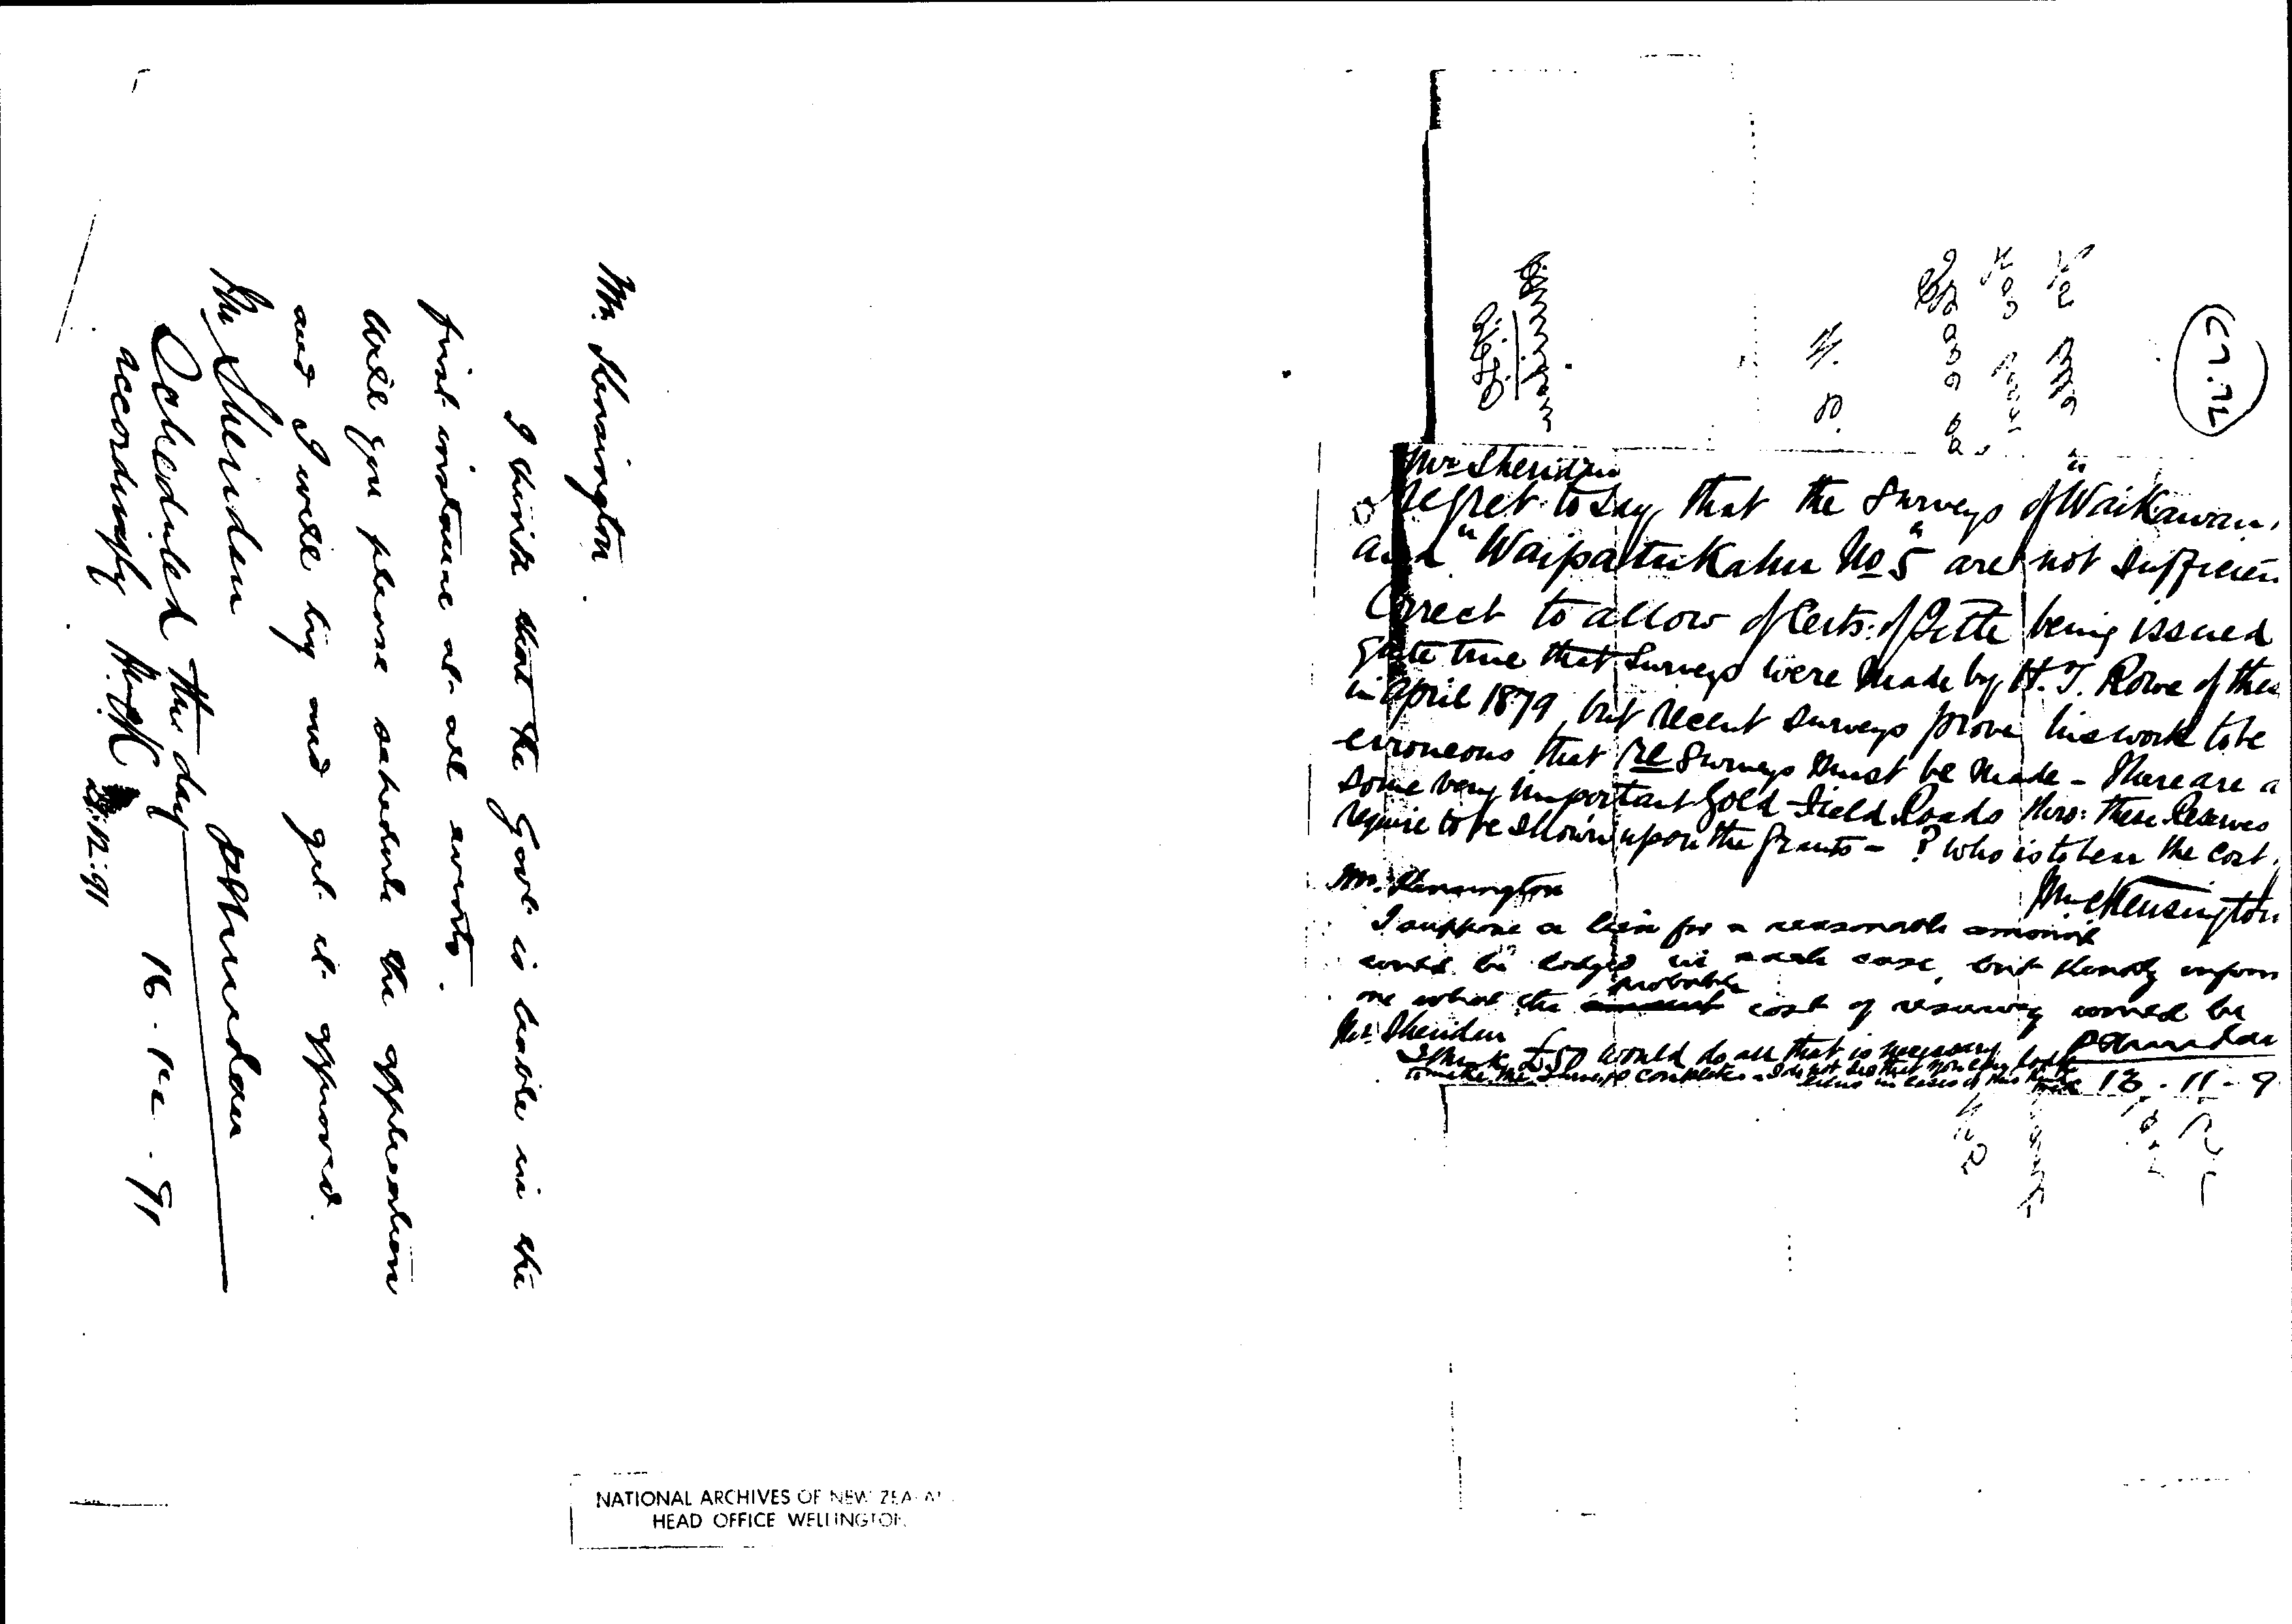 Mr. Kensington
I think that the Govt is liable in the
first instance at all events.
Will you please schedule the application
and I will try and get it approved.
PSheridan
16.12.91
Mr Sheridan
Scheduled this day
accordingly
W.C.K
21.12.91
NATIONAL ARCHIVES OF NEW ZEALA
HEAD OFFICE WELLINGTON
Mr Sheridan
regret to say that the Surveys of "Waikawau"
and "Waipatukahu No 5" are not sufficien
Correct to allow of Certs: of Title being issued
quite true that Surveys were made by H. T. Rowe of thes
in April 1879, but recent Surveys prove his work to be
erroneous that re Surveys must be made - There are a
some very important Gold Field Roads thro: these Reserves
require to be shown upon the Grants - ? Who is to bear the cost.
W C Kensington
Mr. Kensington
I suppose a lien for a reasonable amount
could be lodged in each case, but kindly inform
me what the probable cost of resurvey would be
PSheridan
13-11-9
Mr Sheridan
I think £50 would do all that is necessary
to make the Surveys complete - I do not see that you can lodge
liens in cases of this kind